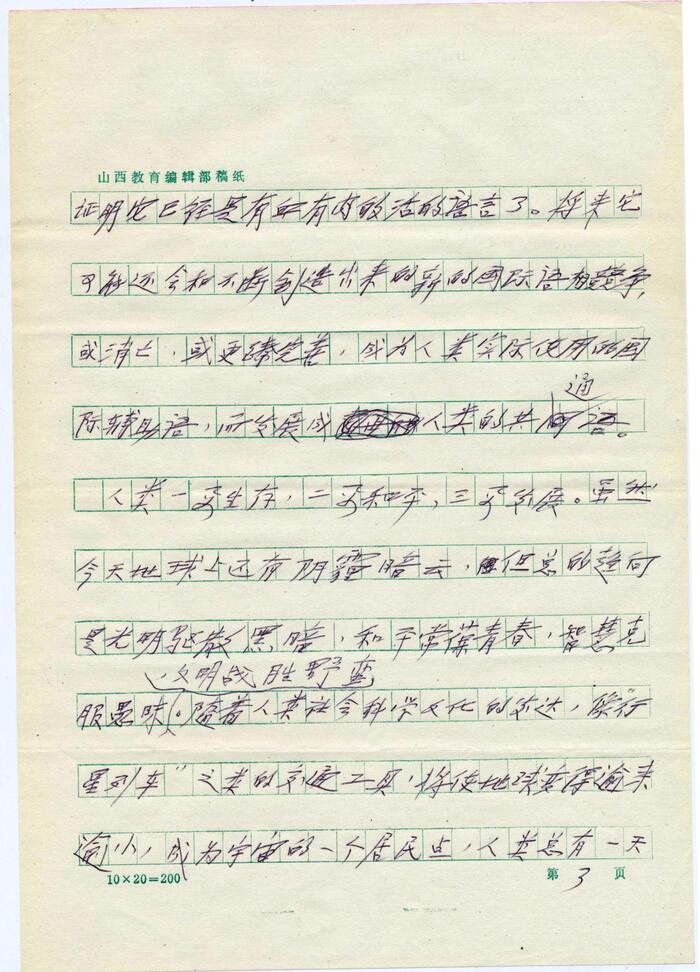 山西教育编辑部稿纸
证明它已经是有血有肉的活的语言了。将来它
可能还会和不断创造出来的新的国际语相竞争,
或消亡,或更臻完善,成为人类实际使用的国
通
际辅助语,而发展成人类的共同语。
人类一要生存,二要和平,三要发展。虽然
今天地球上还有阴霾暗云,但总的趋向
是光明驱散黑暗,和平常葆青春,智慧克
,文明战胜野蛮
服愚昧。随着人类社会科学文化的发达,“行
星列车”之类的交通工具,将使地球变得逾来
逾小,成为宇宙的一个居民点,人类总有一天
10×20=200
第3页